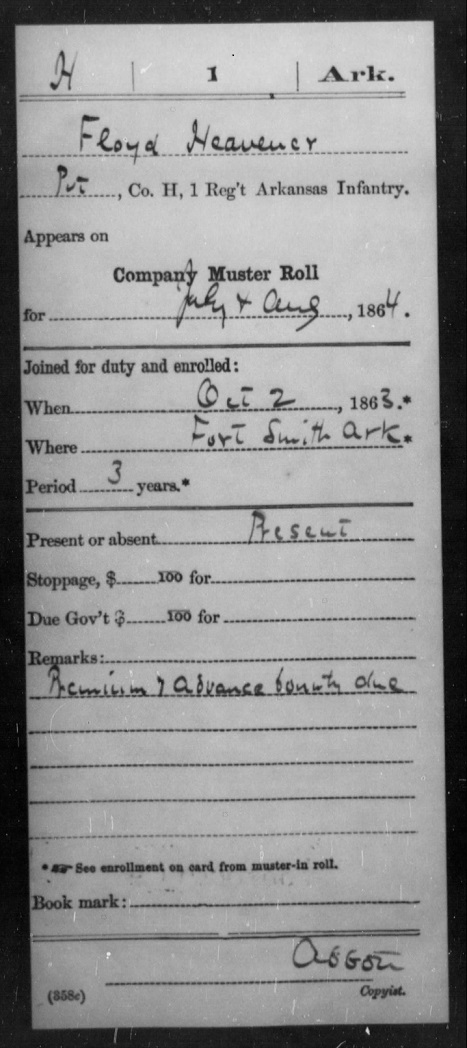 H | 1 | Ark.
Floyd Heavener
Pvt, Co. H, 1 Reg't Arkansas Infantry.
Appears on
Company Muster Roll
for July & Aug, 1864.
Joined for duty and enrolled:
When Oct 2, 1863.*
Where Fort Smith Ark.*
Period 3 years.*
Present or absent Present
Stoppage, $ 100 for
Due Gov't $ 100 for
Remarks:
Premium & advance bounty due
* See enrollment on card from muster-in roll.
Book mark:
(358c) Copyist.